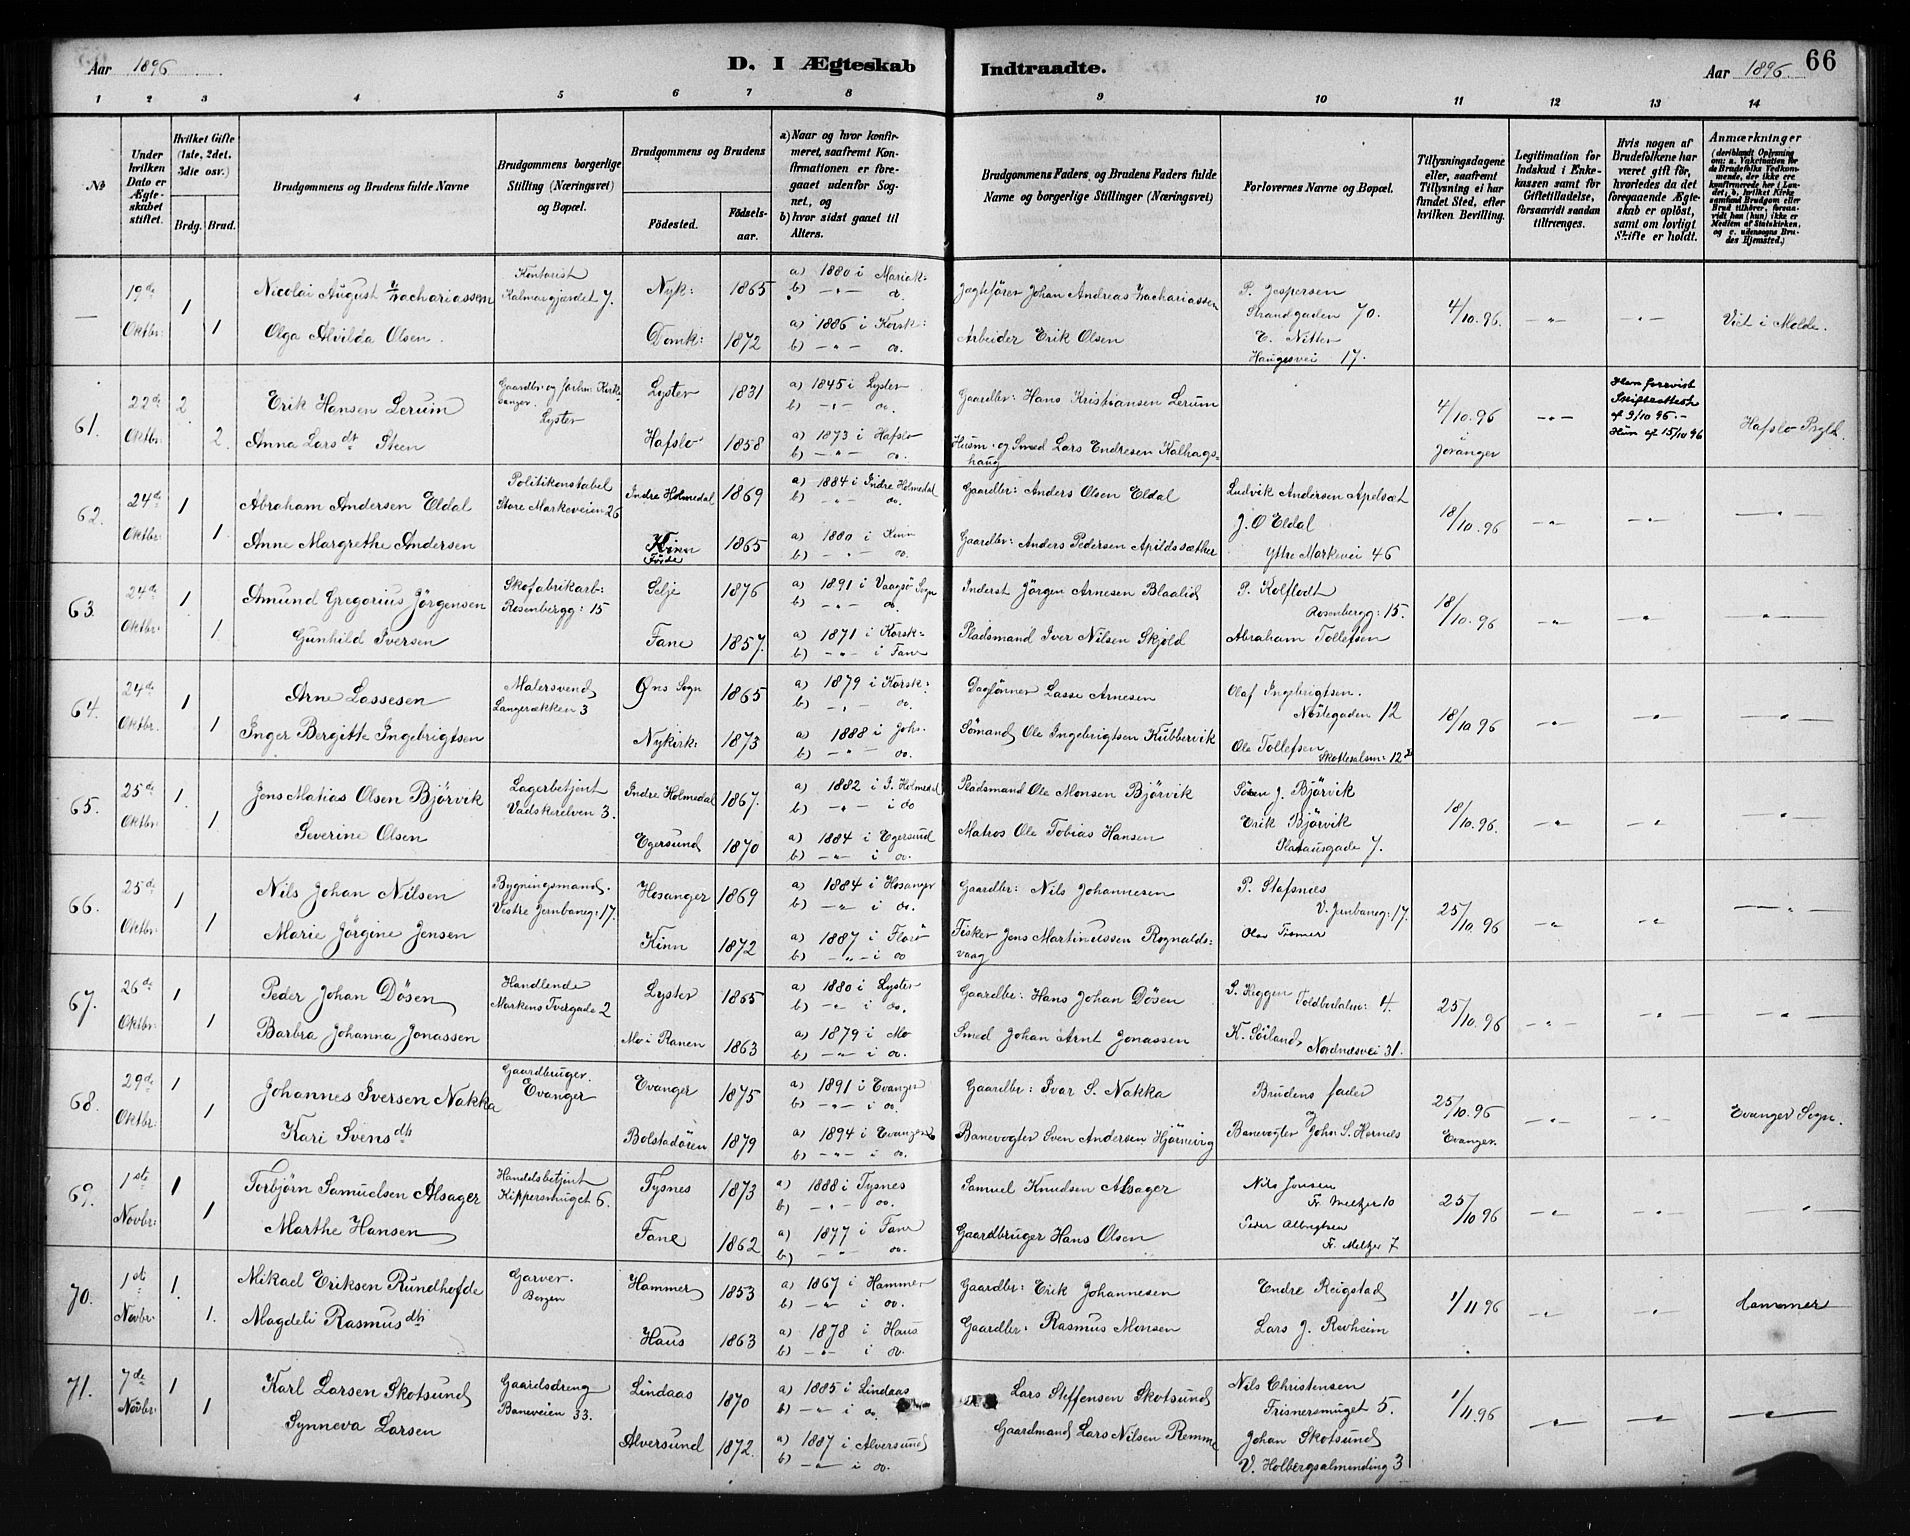 Aar 1896
D. I Ægteskab Indtraadte.
Aar 1896.
66
1 2 3 4 5 6 7 8 9 10 11 12 13 14
No
Under hvilken Dato er Ægteskabet stiftet.
Hvilket Gifte (1ste, 2det, 3die osv.)
Brdg. Brud.
Brudgommens og Brudens fulde Navne
Brudgommens borgerlige Stilling (Næringsvei) og Bopæl.
Brudgommens og Brudens
Fødested. Fødselsaar.
a) Naar og hvor konfirmeret, saafremt Konfirmationen er foregaaet udenfor Sognet, og
b) hvor sidst gaaet til Alters.
Brudgommens Faders og Brudens Faders fulde Navne og borgerlige Stillinger (Næringsvei)
Forlovernes Navne og Bopæl.
Tillysningsdagene eller, saafremt Tillysning ei har fundet Sted, efter hvilken Bevilling.
Legitimation for Indskud i Enkekassen samt for Giftetilladelse, forsaavidt saadan tiltrænges.
Hvis nogen af Brudefolkene har været gift før, hvorledes da det foregaaende Ægteskab er opløst, samt om lovligt Skifte er holdt.
Anmærkninger (deriblandt Oplysning om: a. Vakcination for de Brudefolks Vedkommende, der ikke er konfirmerede her i Landet, b. hvilket Kirkesamfund Brudgom eller Brud tilhører, forsaavidt han (hun) ikke er Medlem af Statskirken, og c. udensogns Brudes Hjemsted.)
— 19de Oktbr: 1 Nicolai August Zachariassen Kontorist Kalmargjærdet 7. Nyk: 1865 a) 1880 i Mariak: b) — " — do. Jægtefører Johan Andreas Zachariassen P. Jespersen Strandgaden 70. 4/10.96. — " — — " — Viet i Molde.
1 Olga Alvilda Olsen. Domk: 1872 a) 1886 i Korsk: b) — " — do. Arbeider Erik Olsen E. Nitter Haugesvei 17.
61. 22de Oktbr: 2 Erik Hansen Lerum Gaardbr: og forhen Kirkesanger. Lyster Lyster 1831 a) 1845 i Lyster b) — " — do. Gaardbr: Hans Kristiansen Lerum 4/10.96 Jøranger — " — Hafslo Prgld.
2. Anna Larsdt Steen Hafslo 1858 a) 1873 i Hafslo b) — " — do. Husm. og Smed Lars Endresen Kalhagshaug Skifteattest af 9/10 96.- Hun af 15/10 96
62. 24de Oktbr: 1 Abraham Andersen Eldal Politikonstabel Store Markeveien 26 Indre Holmedal 1869 a) 1884 i Indre Holmedal b) — " — do. Gaardbr: Anders Olsen Eldal Ludvik Andersen Apelsæt 18/10.96 — " — — " — — " —
1 Anne Margrethe Andersen Kinn Førde 1865 a) 1880 i Kinn b) — " — do. Gaardbr: Anders Pedersen Apildssæther J. O Eldal Ytre Markevei 46
63. 24de Oktbr: 1 Amund Gregorius Jörgensen Skofabrikarb: Rosenbergg: 15 Selje 1876 a) 1891 i Vaagsö Sogn b) — " — do. Inderst Jörgen Arnesen Blaalid P. Kolflodt Rosenbergg: 15. 18/10.96 — " — — " — — " —
1 Gunhild Iversen Fane 1857. a) 1871 i Korsk: b) — " — i Fane Pladsmand Iver Nilsen Skjold Abraham Tollefsen
64. 24de Oktbr: 1 Arne Lassesen Malersvend Langerækken 3 Øns Sogn 1865 a) 1879 i Korsk: b) — " — do. Daglönner Lasse Arnesen Olaf Ingebrigtsen. Nöstegaden 12 18/10.96 — " — — " — — " —
1 Inger Bergitte Ingebrigtsen Nykirk: 1873 a) 1888 i Joh: b) — " — do. Sömand Ole Ingebrigtsen Kubbervik Ole Tollefsen Skottesalm: 12
65. 25de Oktbr: 1. Jens Matias Olsen Björvik Lagerbetjent Vadskerelven 3. Indre Holmedal 1867. a) 1882 i I. Holmedal b) — " — i do Pladsmand Ole Monsen Björvik J. Björvik 18/10.96. — " — — " — — " —
1 Severine Olsen Egersund 1870 a) 1884 i Egersund b) — " — i do. Matros Ole Tobias Hansen Erik Björvik Platausgade 7.
66. 25de Oktbr: 1 Nils Johan Nilsen Bygningsmand. Vestre Jernbaneg: 17. Hosanger 1869 a) 1884 i Hosanger b) — " — i do. Gaardbr: Nils Johannesen P. Stafsnes V. Jernbaneg: 17. 25/10.96 — " — — " — — " —
1 Marie Jörgine Jensen Kinn 1872 a) 1887 i Florö b) — " — i do Fisker Jens Martinussen Rognaldsvaag
67. 26de Oktbr: 1 Peder Johan Døsen Handlende Markens Tvergade 2 Lyster 1865 a) 1880 i Lyster b) — " — i do. Gaardbr: Hans Johan Døsen S. Keggen Toldbodalm: 4. 25/10.96 — " — — " — — " —
1 Barbra Johanna Jonassen Mo i Ranen 1863 a) 1879 i Mo b) — " — i do. Smed Johan Arnt Jonassen K. Söiland Nordnæsvei 31.
68. 29de Oktbr: 1 Johannes Iversen Nakka Gaardbruger. Evanger Evanger 1875 a) 1891 i Evanger b) — " — i do. Gaardbr: Ivar S. Nakka Brudens fader og 25/10.96 Evanger. — " — — " — Evanger Sogn.
1 Kari Svensdt Bolstadören 1879 a) 1894 i Evanger b) — " — i do. Banevogter Sven Andersen Hjörnevig Banevogter John S. Hernes
69. 1ste Novbr: 1 Torbjörn Samuelsen Alsager Handelsbetjent Kippersmuget 6. Tysnes 1873 a) 1888 i Tysnes b) — " — do. Samuel Knudsen Alsager Nils Jonsen Fr. Meltzer 10 25/10.96 — " — — " — — " —
1 Marthe Hansen Fane 1862 a) 1877 i Fane b) — " — do. Gaardbruger Hans Olsen Peder Albrigtsen Fr. Meltzer 7
70. 1ste Novbr: 1. Mikael Eriksen Rundhofde Garver. Bergen Hammer 1853 a) 1867 i Hammer b) — " — i do. Gaardbr: Erik Johannesen Endre Reigstad 1/11 96 — " — — " — Hammer
1. Magdeli Rasmusdt Haus 1863 a) 1878 i Haus b) — " — i do. Gaardbr: Rasmus Monsen Lars J. Revheim
71. 7de Novbr: 1 Karl Larsen Skotsund Gaardsdreng Baneveien 33. Lindaas 1870 a) 1885 i Lindaas b) — " — i do. Lars Steffensen Skotsund Nils Christensen Frisnersmuget 5. 1/11.96 — " — — " — — " —
1 Synneva Larsen Alversund 1872. a) 1887 i Alversund b) — " — i do. Gaardmand Lars Nilsen Remme Johan Skotsund V. Holbergsalmending 3